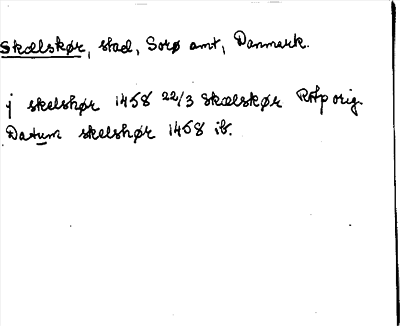 Skælskør, stad, Sorø amt, Danmark.
j skelskør 1458 22/3 Skælskør RAp orig.
Datum skelskør 1458 ib.